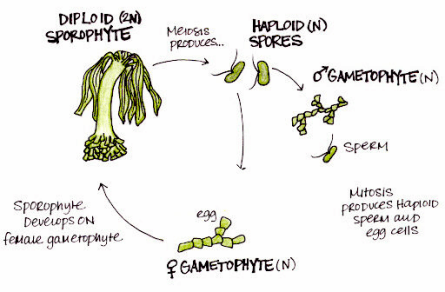 DIPLOID (2N)
SPOROPHYTE
MEIOSIS
PRODUCES...
HAPLOID (N)
SPORES
♂GAMETOPHYTE (N)
SPERM
MITOSIS
PRODUCES HAPLOID
SPERM AND
egg CELLS
egg
♀GAMETOPHYTE (N)
SPOROPHYTE
DEVELOPS ON
female gametophyte